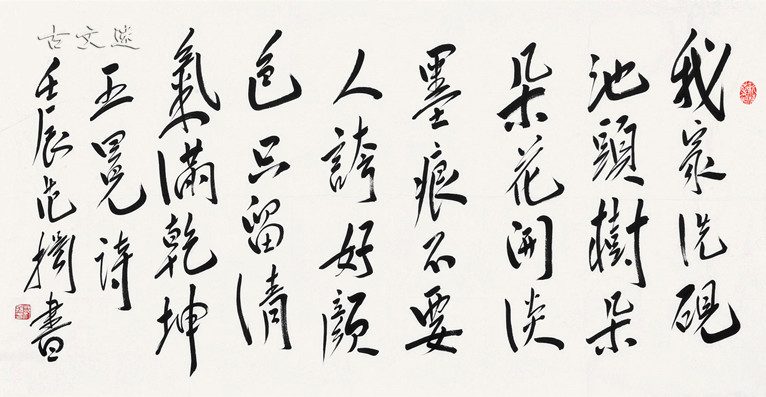 我家洗硯
池頭樹朵
朵花開淡
墨痕不要
人誇好顏
色只留清
氣滿乾坤
王冕詩
壬辰范書
古文